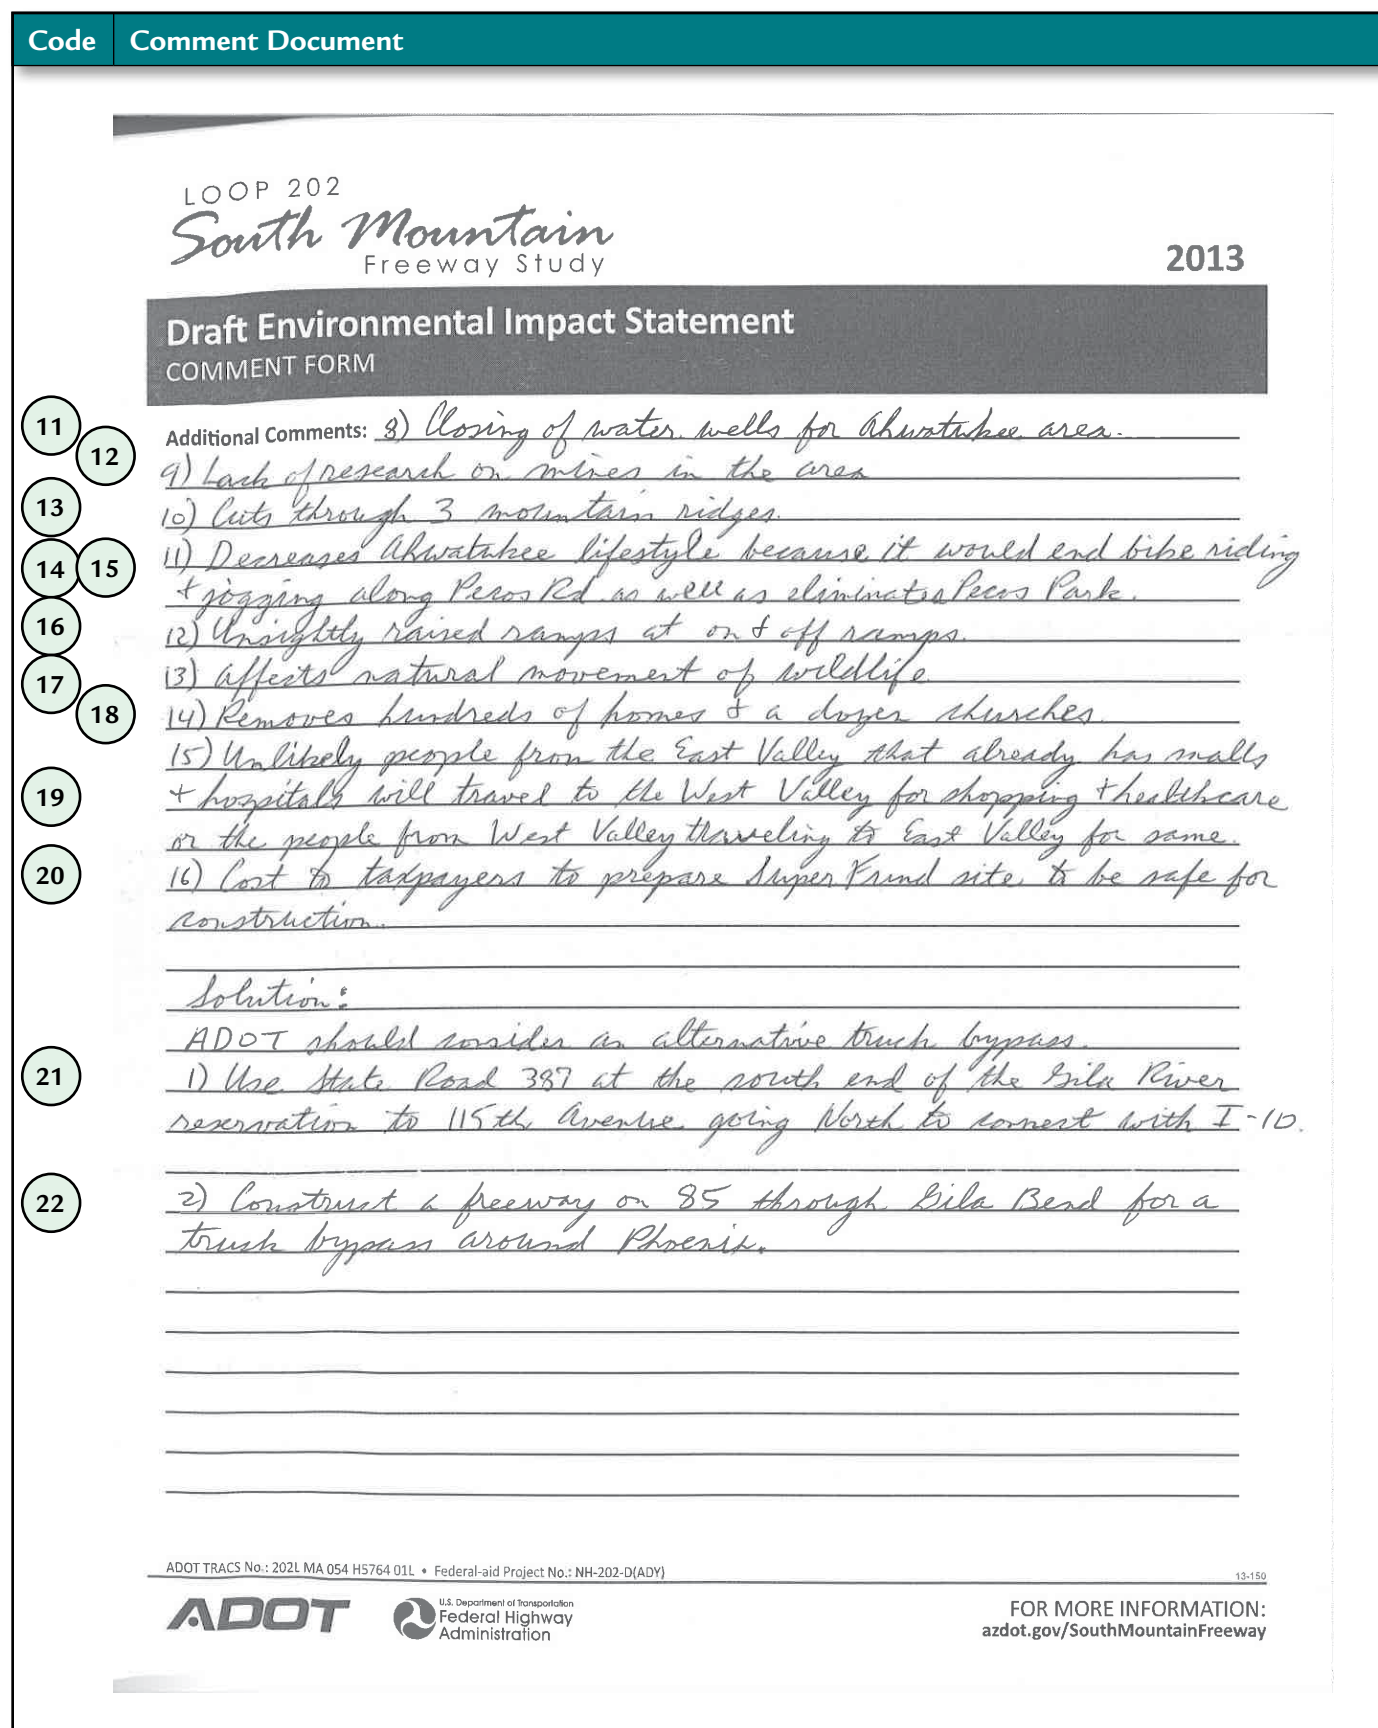 Code Comment Document
LOOP 202
South Mountain
Freeway Study
2013
Draft Environmental Impact Statement
COMMENT FORM
11 Additional Comments: 8) Closing of water wells for Ahwatukee area.
12 9) Lack of research on mines in the area
13 10) Cuts through 3 mountain ridges.
14 15 11) Decreases Ahwatukee lifestyle because it would end bike riding
+ jogging along Pecos Rd as well as eliminates Pecos Park.
16 12) Unsightly raised ramps at on & off ramps.
17 13) Affects natural movement of wildlife
18 14) Removes hundreds of homes & a dozen churches.
15) Unlikely people from the East Valley that already has malls
19 + hospitals will travel to the West Valley for shopping + healthcare
or the people from West Valley traveling to East Valley for same.
20 16) Cost to taxpayers to prepare Super Fund site to be safe for
construction.
Solution:
ADOT should consider an alternative truck bypass.
21 1) Use State Road 387 at the south end of the Gila River
reservation to 115th Avenue going North to connect with I-10.
22 2) Construct a freeway on 85 through Gila Bend for a
truck bypass around Phoenix.
ADOT TRACS No.: 202L MA 054 H5764 01L • Federal-aid Project No.: NH-202-D(ADY)
13-150
ADOT
U.S. Department of Transportation
Federal Highway
Administration
FOR MORE INFORMATION:
azdot.gov/SouthMountainFreeway